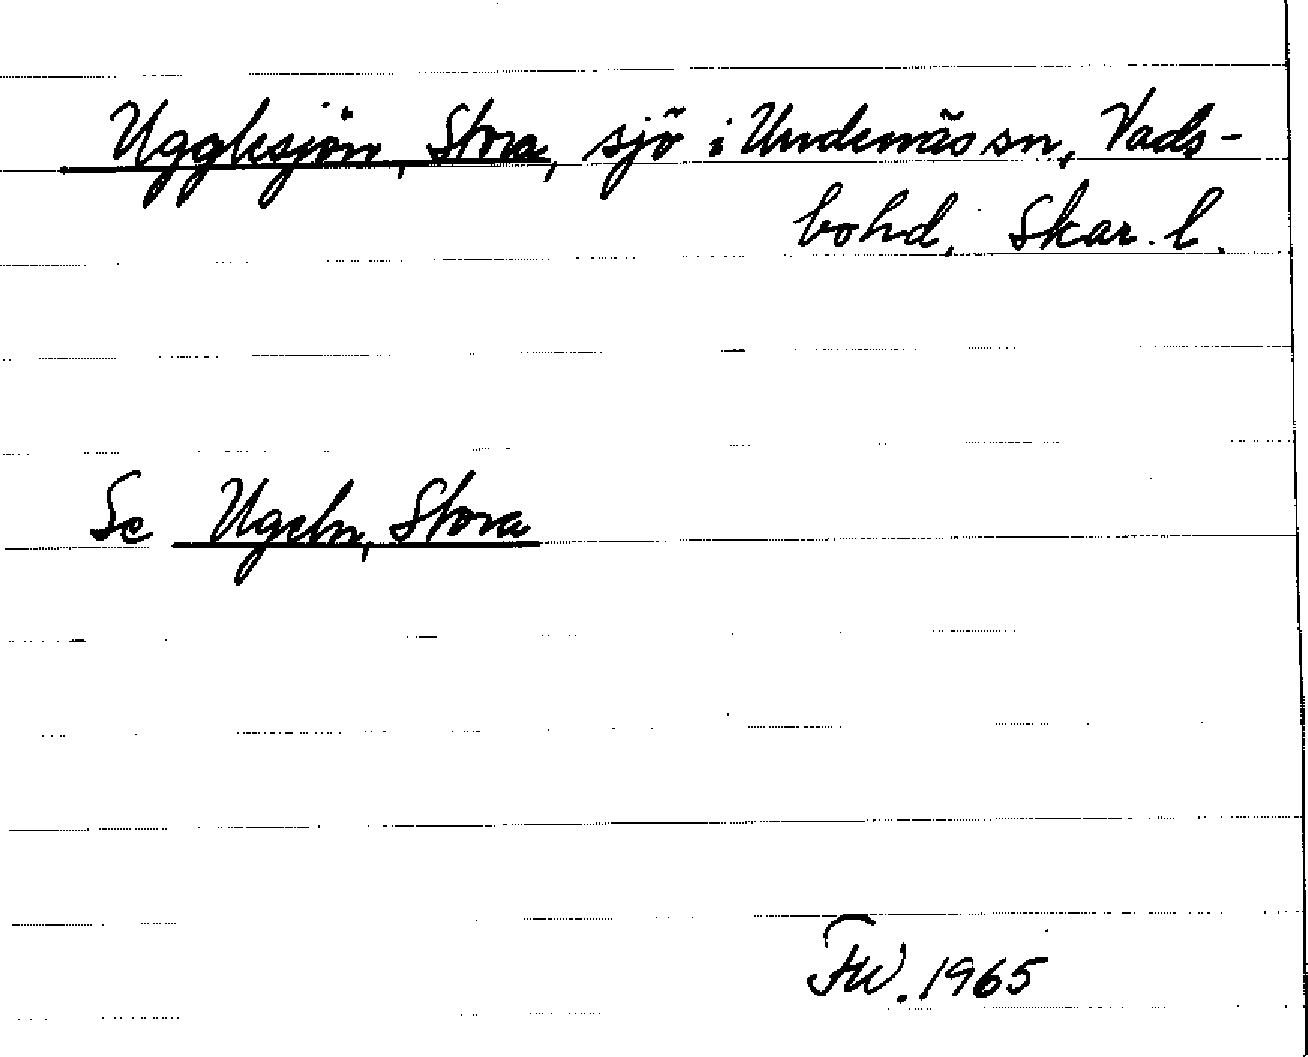 Ugglesjön, Stora, sjö i Undenäs sn, Vads-
bo hd, Skar. l.
Se Ugeln, Stora
FW. 1965